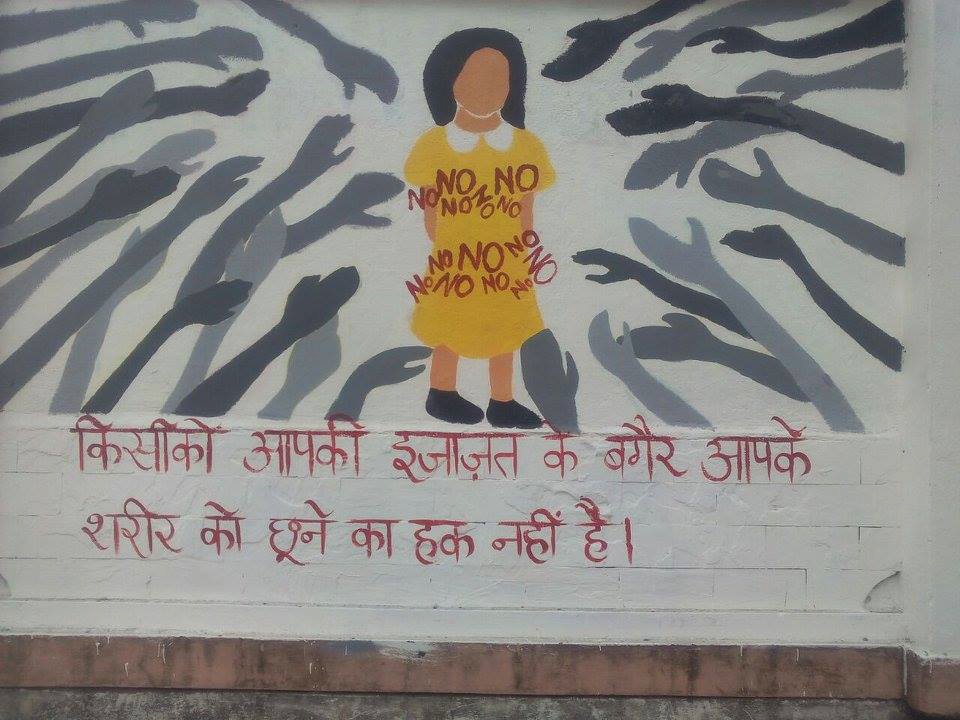 NO NO NO NO NO NO
NO NO NO NO
NO NO NO NO NO
किसीको आपकी इजाज़त के बगैर आपके
शरीर को छूने का हक नहीं है।